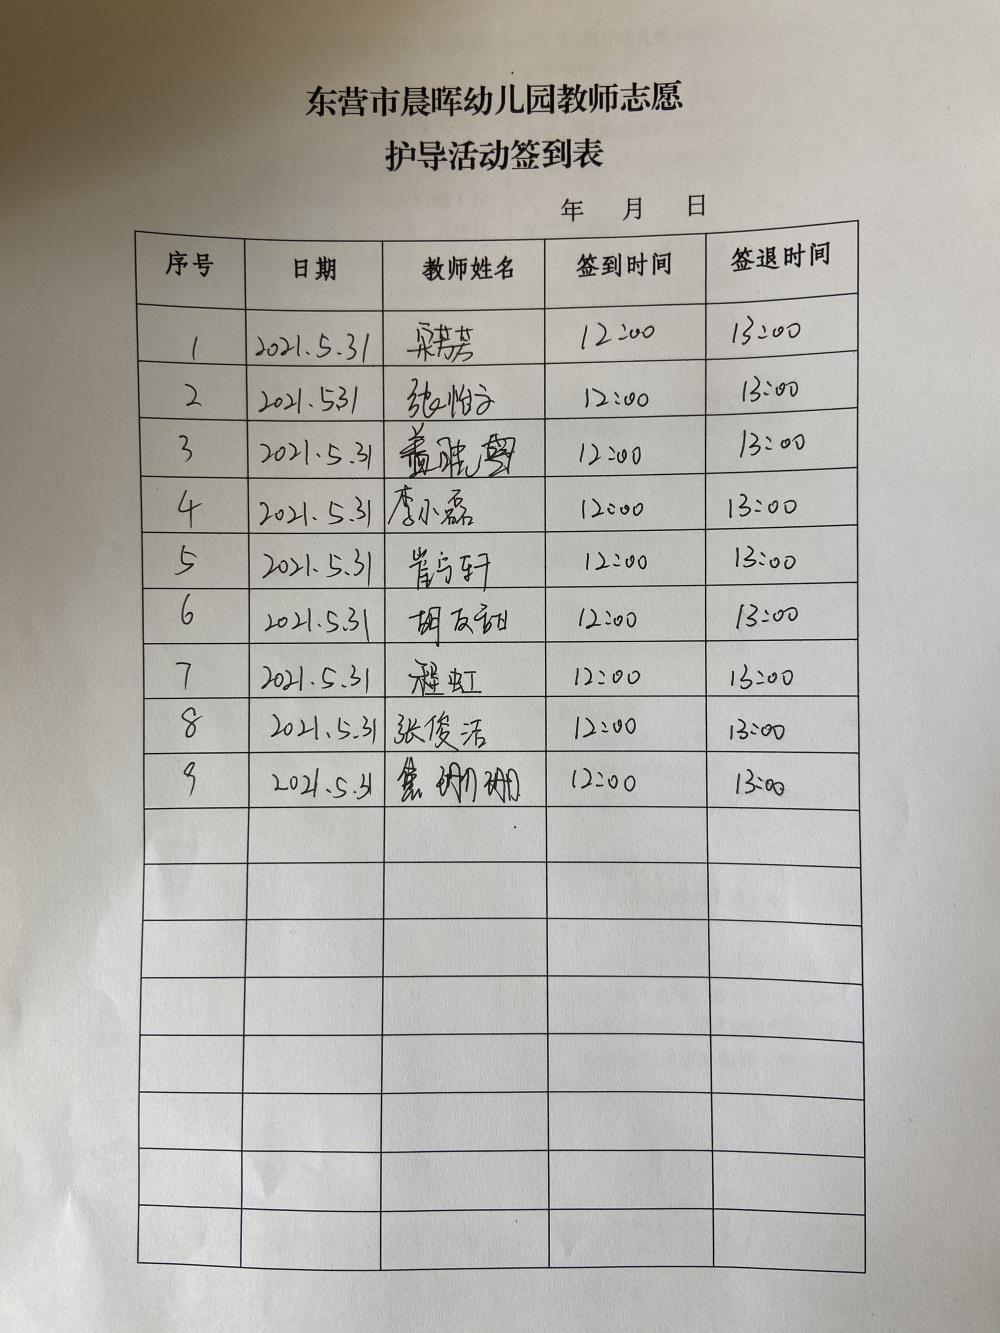 东营市晨晖幼儿园教师志愿
护导活动签到表
年 月 日
序号 日期 教师姓名 签到时间 签退时间
1 2021.5.31 12:00 13:00
2 2021.531 张怡文 12:00 13:00
3 2021.5.31 12:00 13:00
4 2021.5.31 李小磊 12:00 13:00
5 2021.5.31 12:00 13:00
6 2021.5.31 胡友甜 12:00 13:00
7 2021.5.31 程虹 12:00 13:00
8 2021.5.31 张俊洁 12:00 13:00
9 2021.5.31 焦珊珊 12:00 13:00